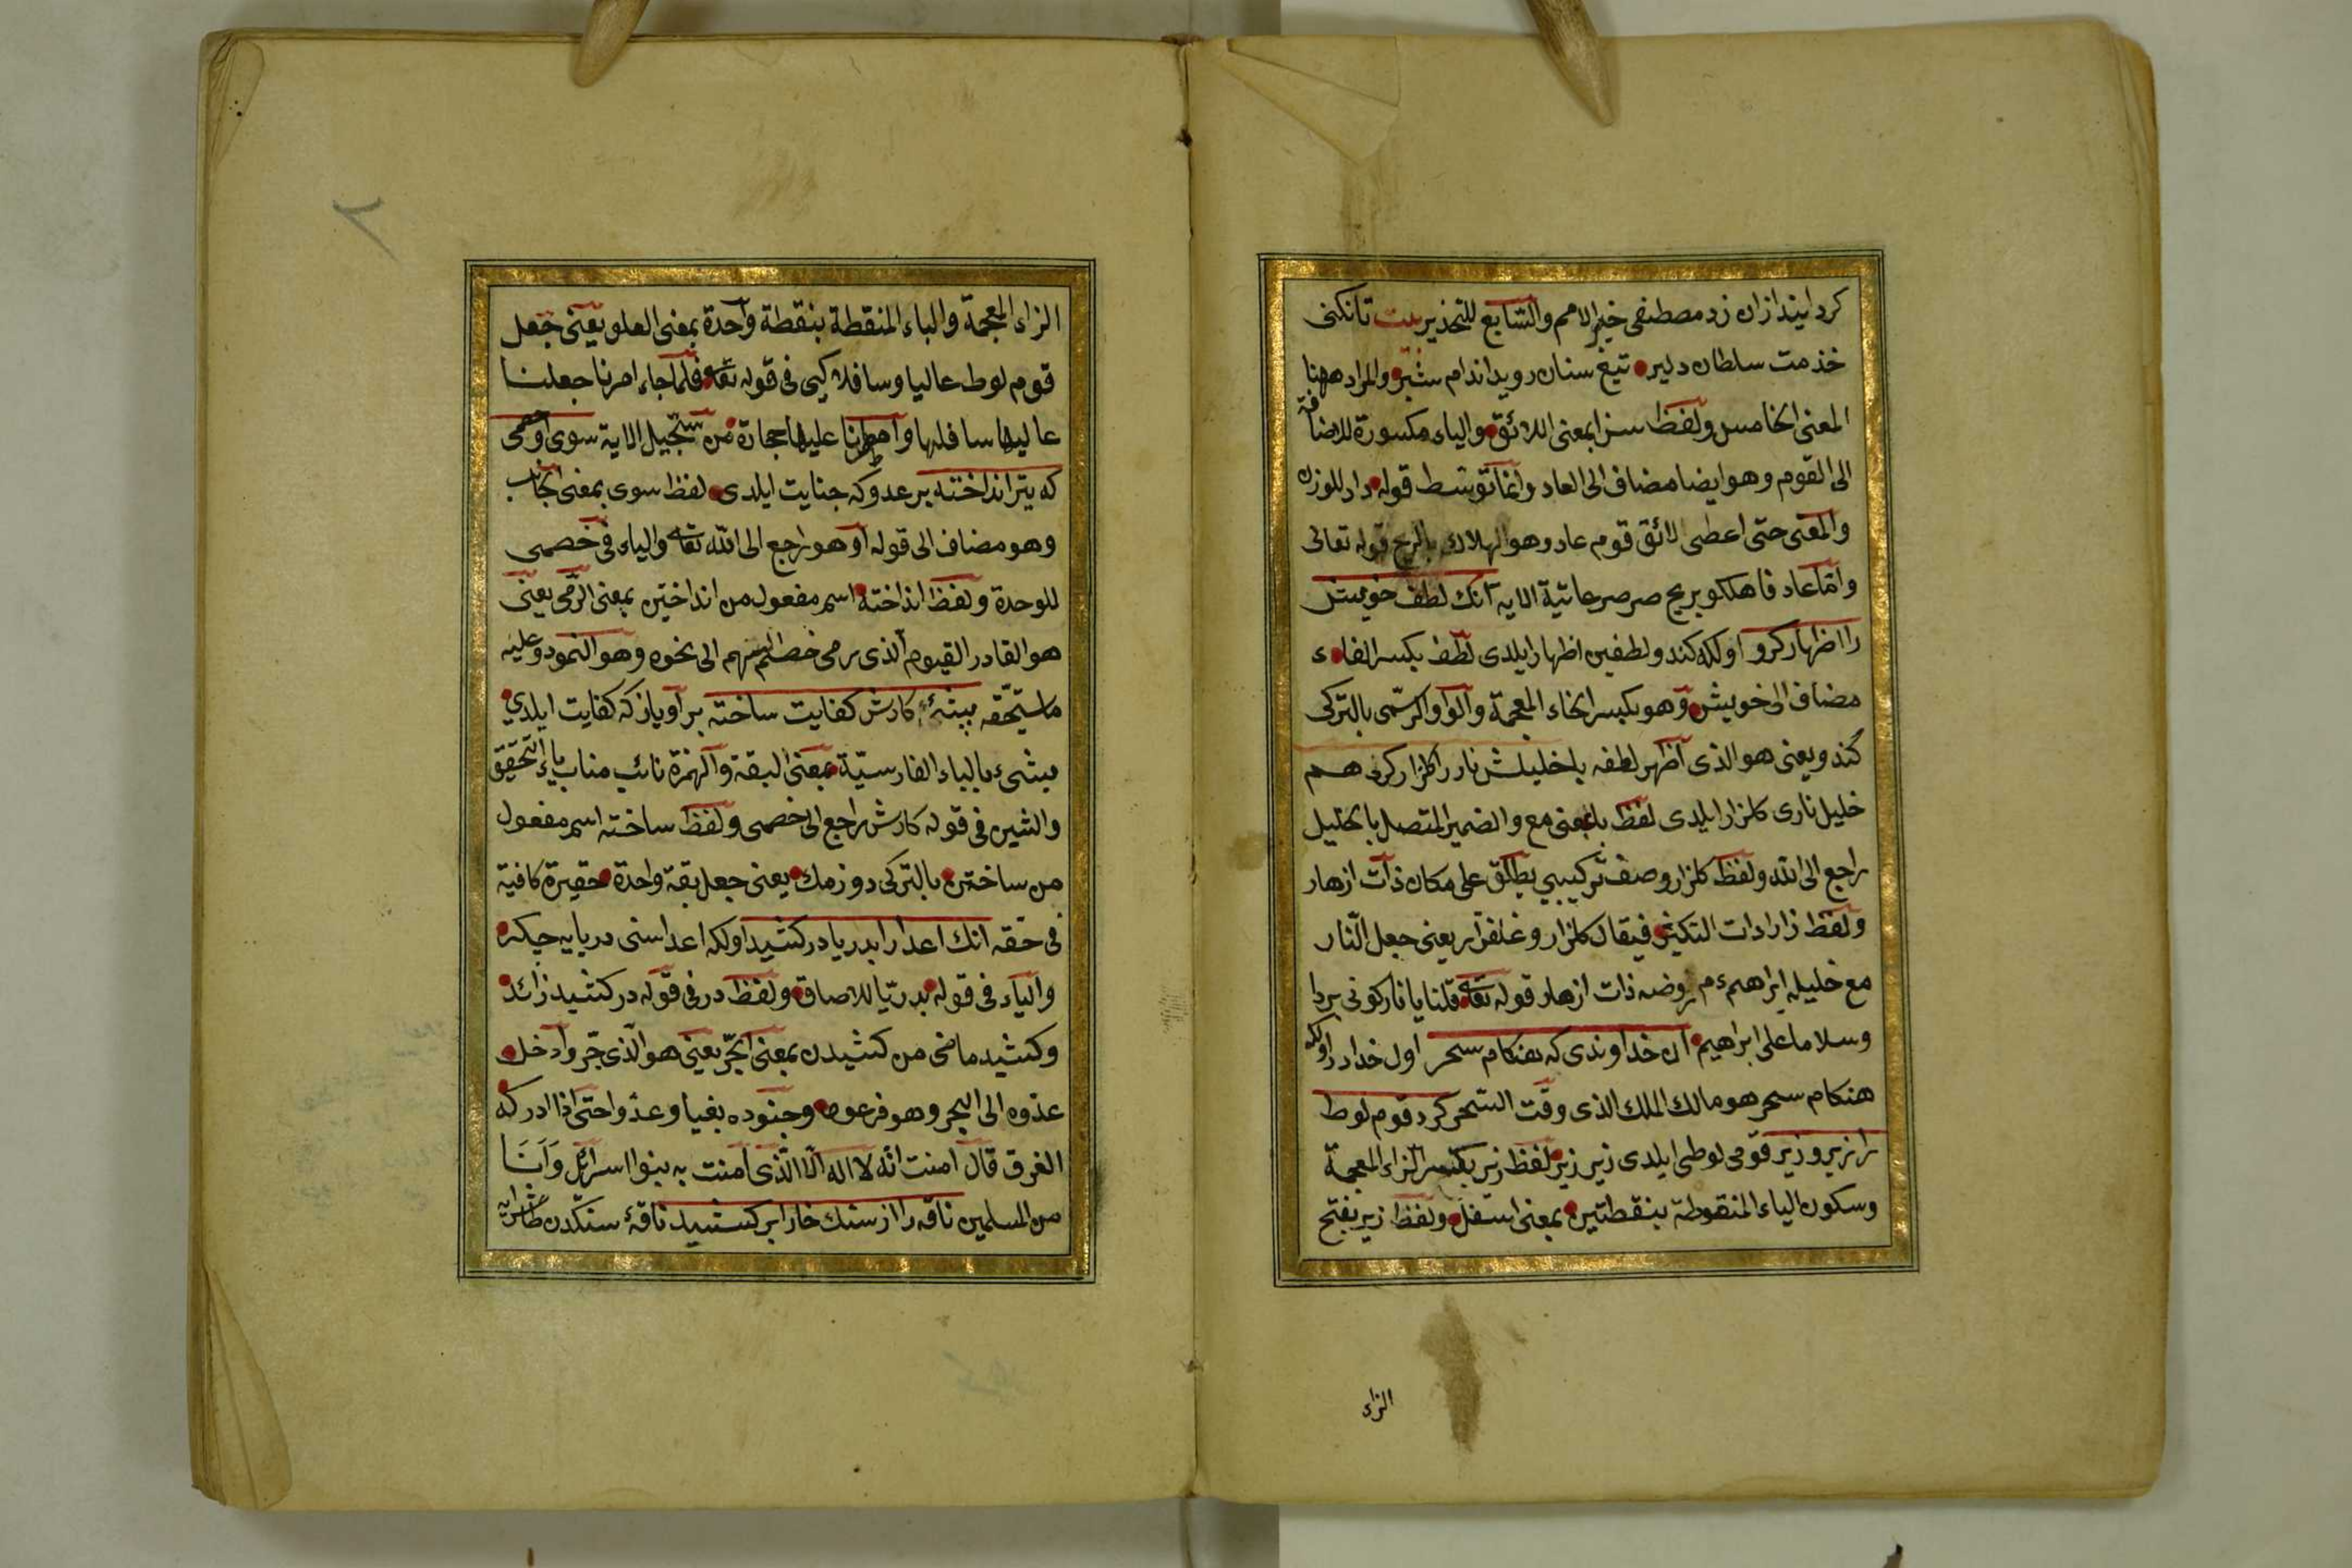 كردايند ازان زد مصطفى خير الامم والسّابع للتحذير بيت تانكنى
خذمت سلطان دلير تيغ سنان رويد اندام شير والمراد ههنا
المعنى الخامس ولفظ سزا بمعنى اللائق والياء مكسورة للاضافة
الى القوم وهو ايضا مضاف الى العاد وانما توسّط قوله داد للوزن
والمعنى حتى اعطى لائق قوم عاد وهو الهلاك بالريح قوله تعالى
وامّا عاد فاهلكو بريح صرصر عاتية الاية آنك لطف خويش
را اظهار كرد اولكه كندو لطفين اظهار ايلدى لطف بكسر الفاء
مضاف الى خويش وهو بكسر الخاء المعجمة والواو الرسمى بالتركى
كندو يعنى هو الذى اظهر لطفه با خليلش نار را كلزار كرد هم
خليل نارى كلزار ايلدى لفظ با بمعنى مع والضمير المتصل بالخليل
راجع الى الله ولفظ كلزار وصف تركيبى يطلق على مكان ذات ازهار
ولفظ زار ادات التكثير فيقال كلزار وعلفزار يعنى جعل النّار
مع خليله ابراهيم م روضه ذات ازهار قوله تعه قلنا يا نار كونى بردا
وسلاما على ابراهيم آن خداوندى كه هنكام سحر اول خدادر اولكه
هنكام سحر هو مالك الملك الذى وقت السّحر كرد قوم لوط
را زير و زبر قومى لوطى ايلدى زير زبر لفظ زير بكسر الزاء المعجمة
وسكون الياء المنقوطة بنقطتين بمعنى اسفل ولفظ زبر بفتح
الزاء
٢
الزاء المعجمة والباء المنقطة بنقطة واحدة بمعنى العلو يعنى جعل
قوم لوط عاليا وسافلا كپى فى قوله تعه فلمّا جاء امرنا جعلنا
عاليها سافلها وامطرنا عليها حجارة من سجّيل الاية سوى او خصمى
كه تير انداخته بر عدو كه جنايت ايلدى لفظ سوى بمعنى الجانب
وهو مضاف الى قوله او هو راجع الى الله تعه والياء فى خصمى
للوحدة ولفظ انداخته اسم مفعول من انداختن بمعنى الرّمى يعنى
هو القادر القيوم الذى رمى خصم السهم الى نحوه وهو النمرود وعليه
ما ستحقه پشئ كارش كفايت ساخته بر آوياز كه كفايت ايلدي
پشئ بالباء الفارسيّة بمعنى البقة والهمزة نائب مناب ياء التحقيق
والشين فى قوله كارش راجع الى خصمى ولفظ ساخته اسم مفعول
من ساختن بالتركى دوزمك يعنى جعل بقة واحدة حقيرة كافية
فى حقه آنك اعدا را بدريا در كشيد اولكه اعداسنى دريايه چكر
والباء فى قوله بدريا للاصاق ولفظ در فى قوله در كشيد زائد
وكشيد ماضى من كشيدن بمعنى الجرّ يعنى هو الذى جرّ وادخل
عدوه الى البحر وهو فرعون وجنوده بغيا وعدوا حتى اذا ادركه
الغرق قال آمنت انّه لا اله الّا الّذى آمنت به بنوا اسرائل وَاَنَا
من المسلمين ناقه را از سنك خارا بر كشيد ناقهٔ سنكدن